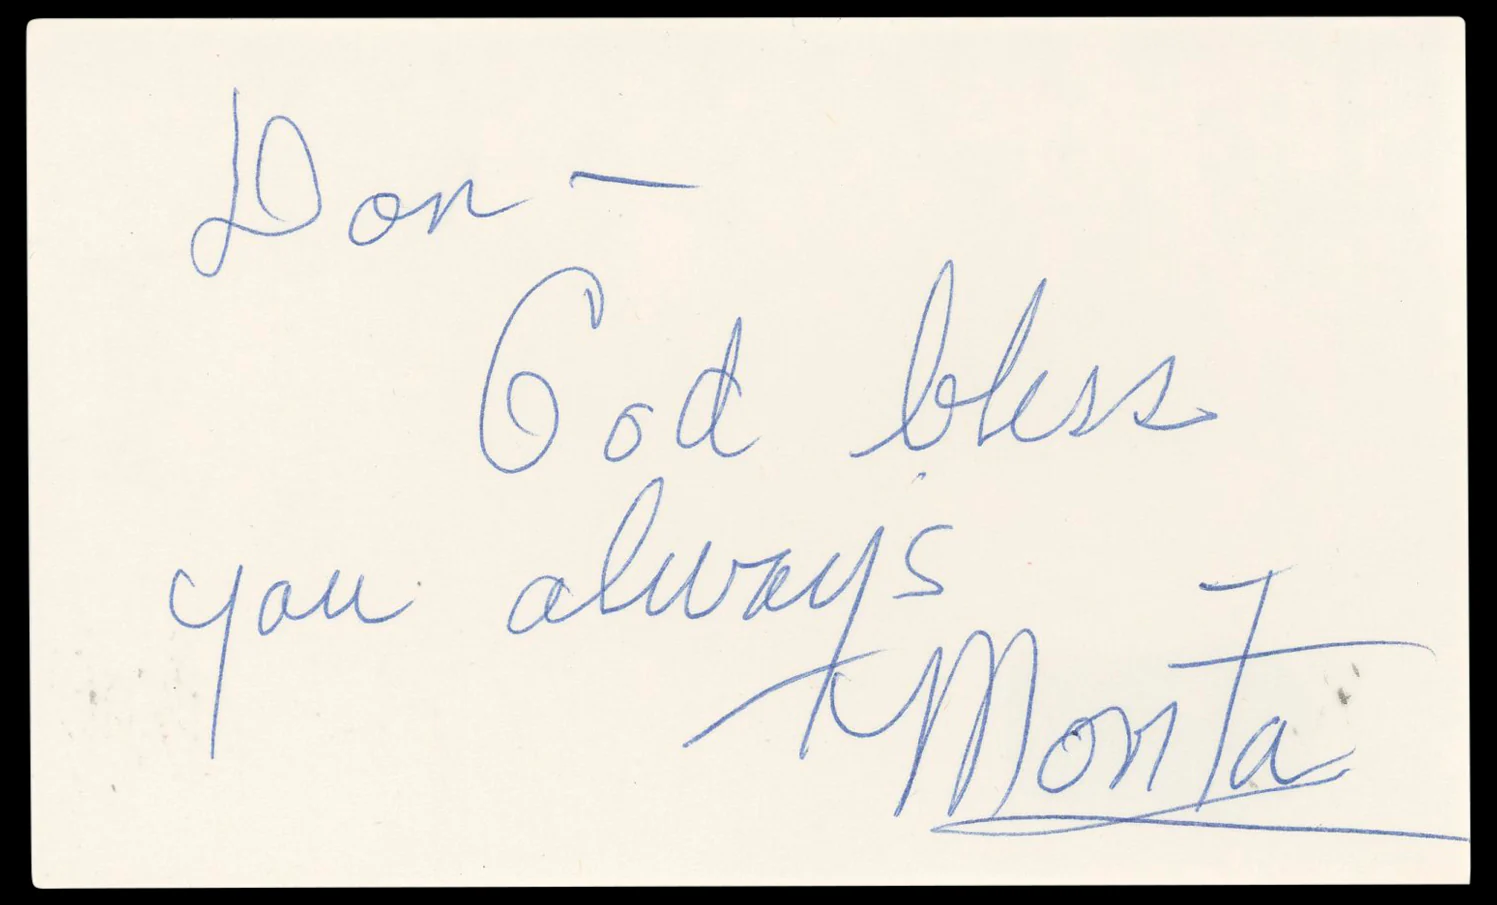 Don —
God bless
you always
Monta